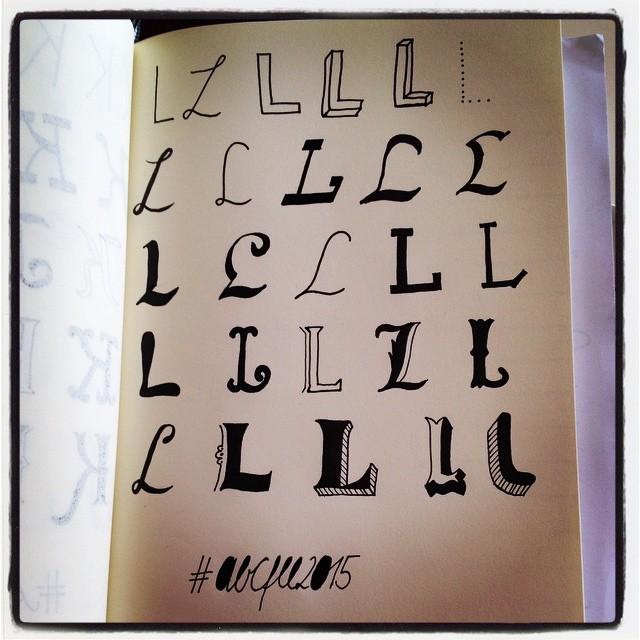 L L L L L L
L L L L L
L L L L L
L L L L L
L L L L L
#abcfee2015